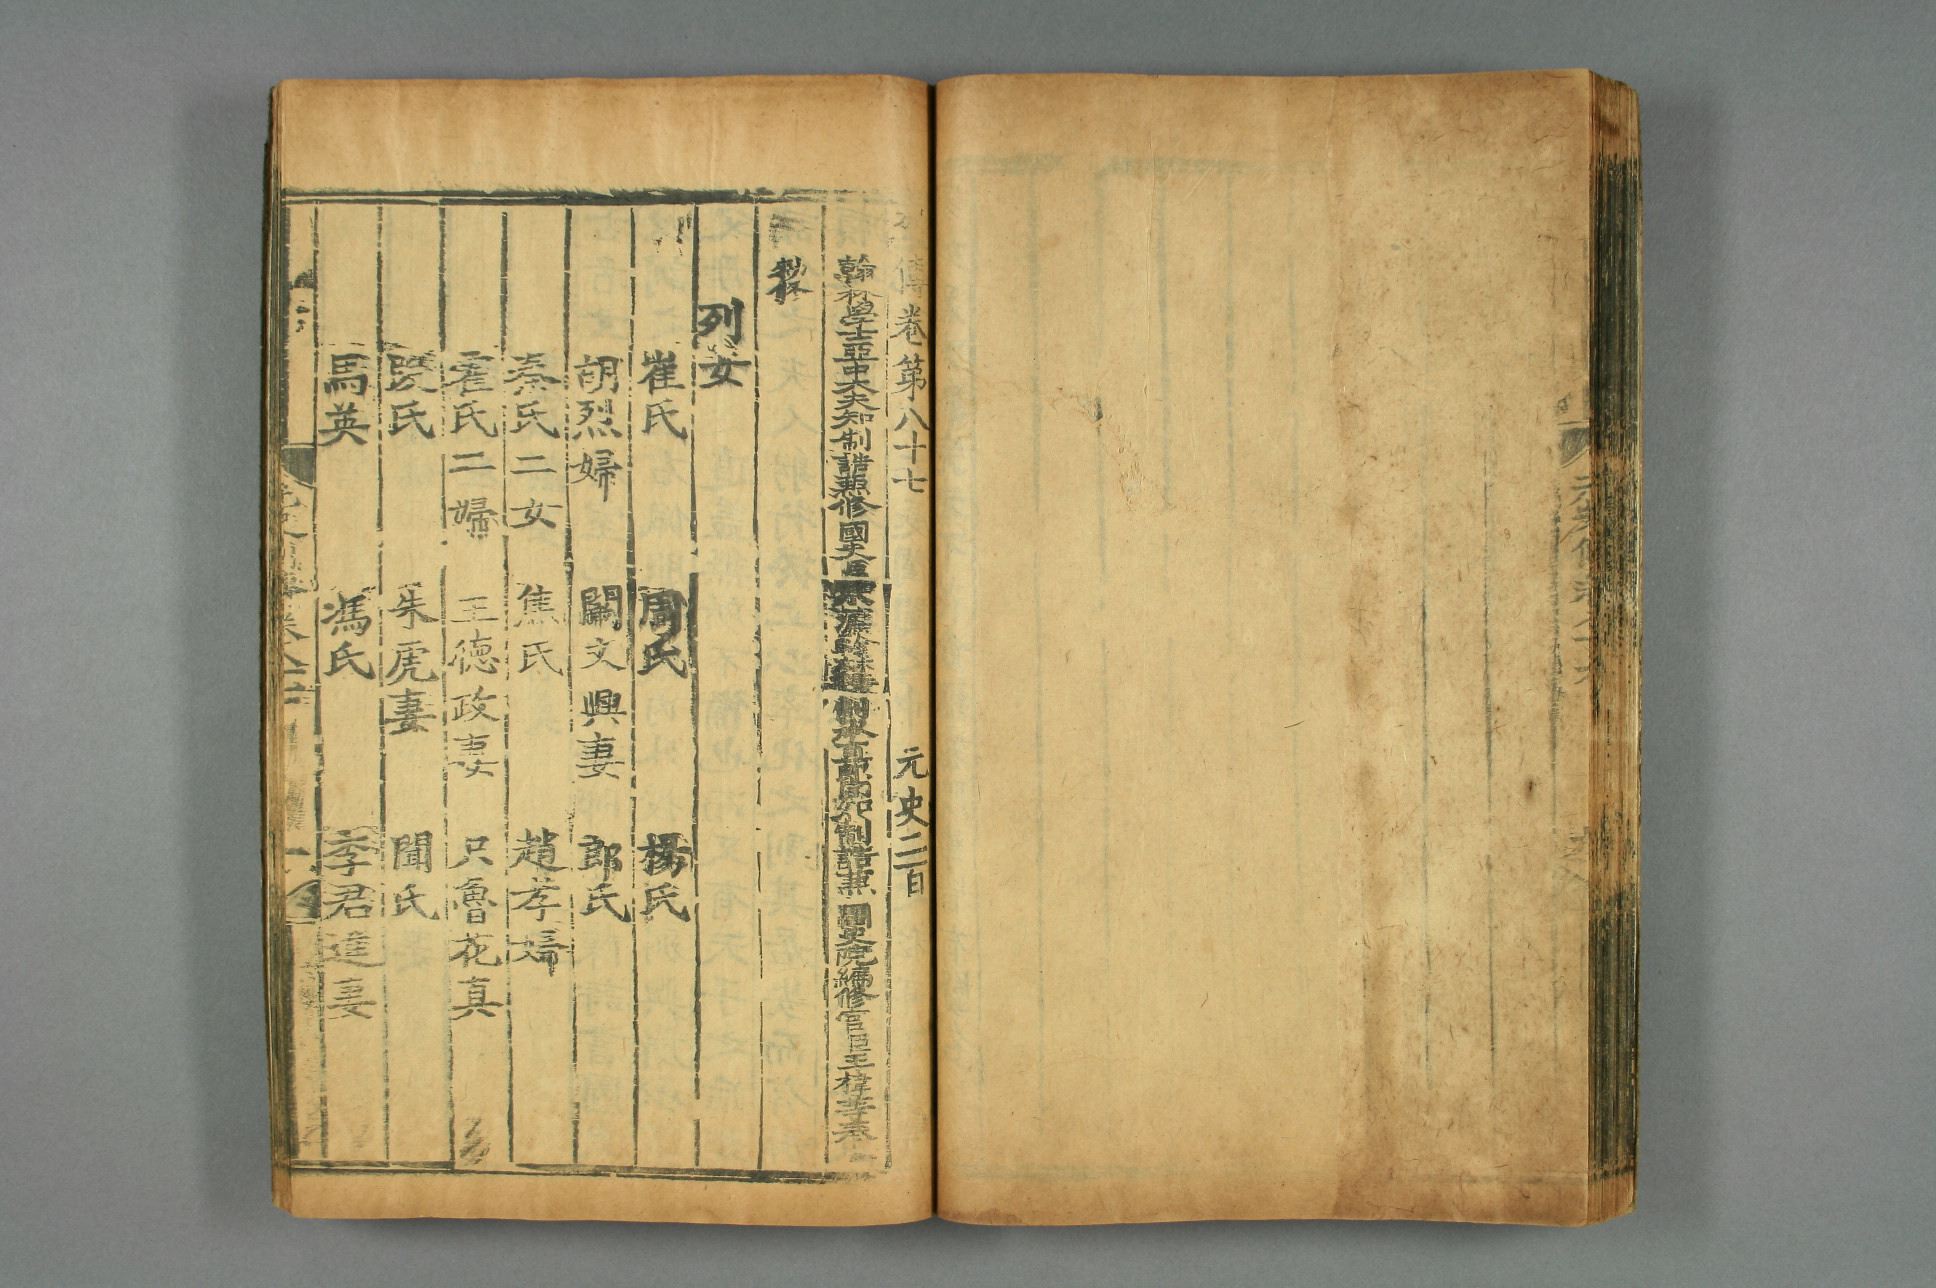 列傳卷第八十七　元史二百
翰林學士亞中大夫知制誥兼修國史臣宋濂 制兼國史院編修官臣王禕等奉
勑修
列女
崔氏　周氏　楊氏
胡烈婦　闞文興妻　郎氏
秦氏二女　焦氏　趙孝婦
霍氏二婦　王德政妻　只魯花真
段氏　朱虎妻　聞氏
馬英　馮氏　李君進妻